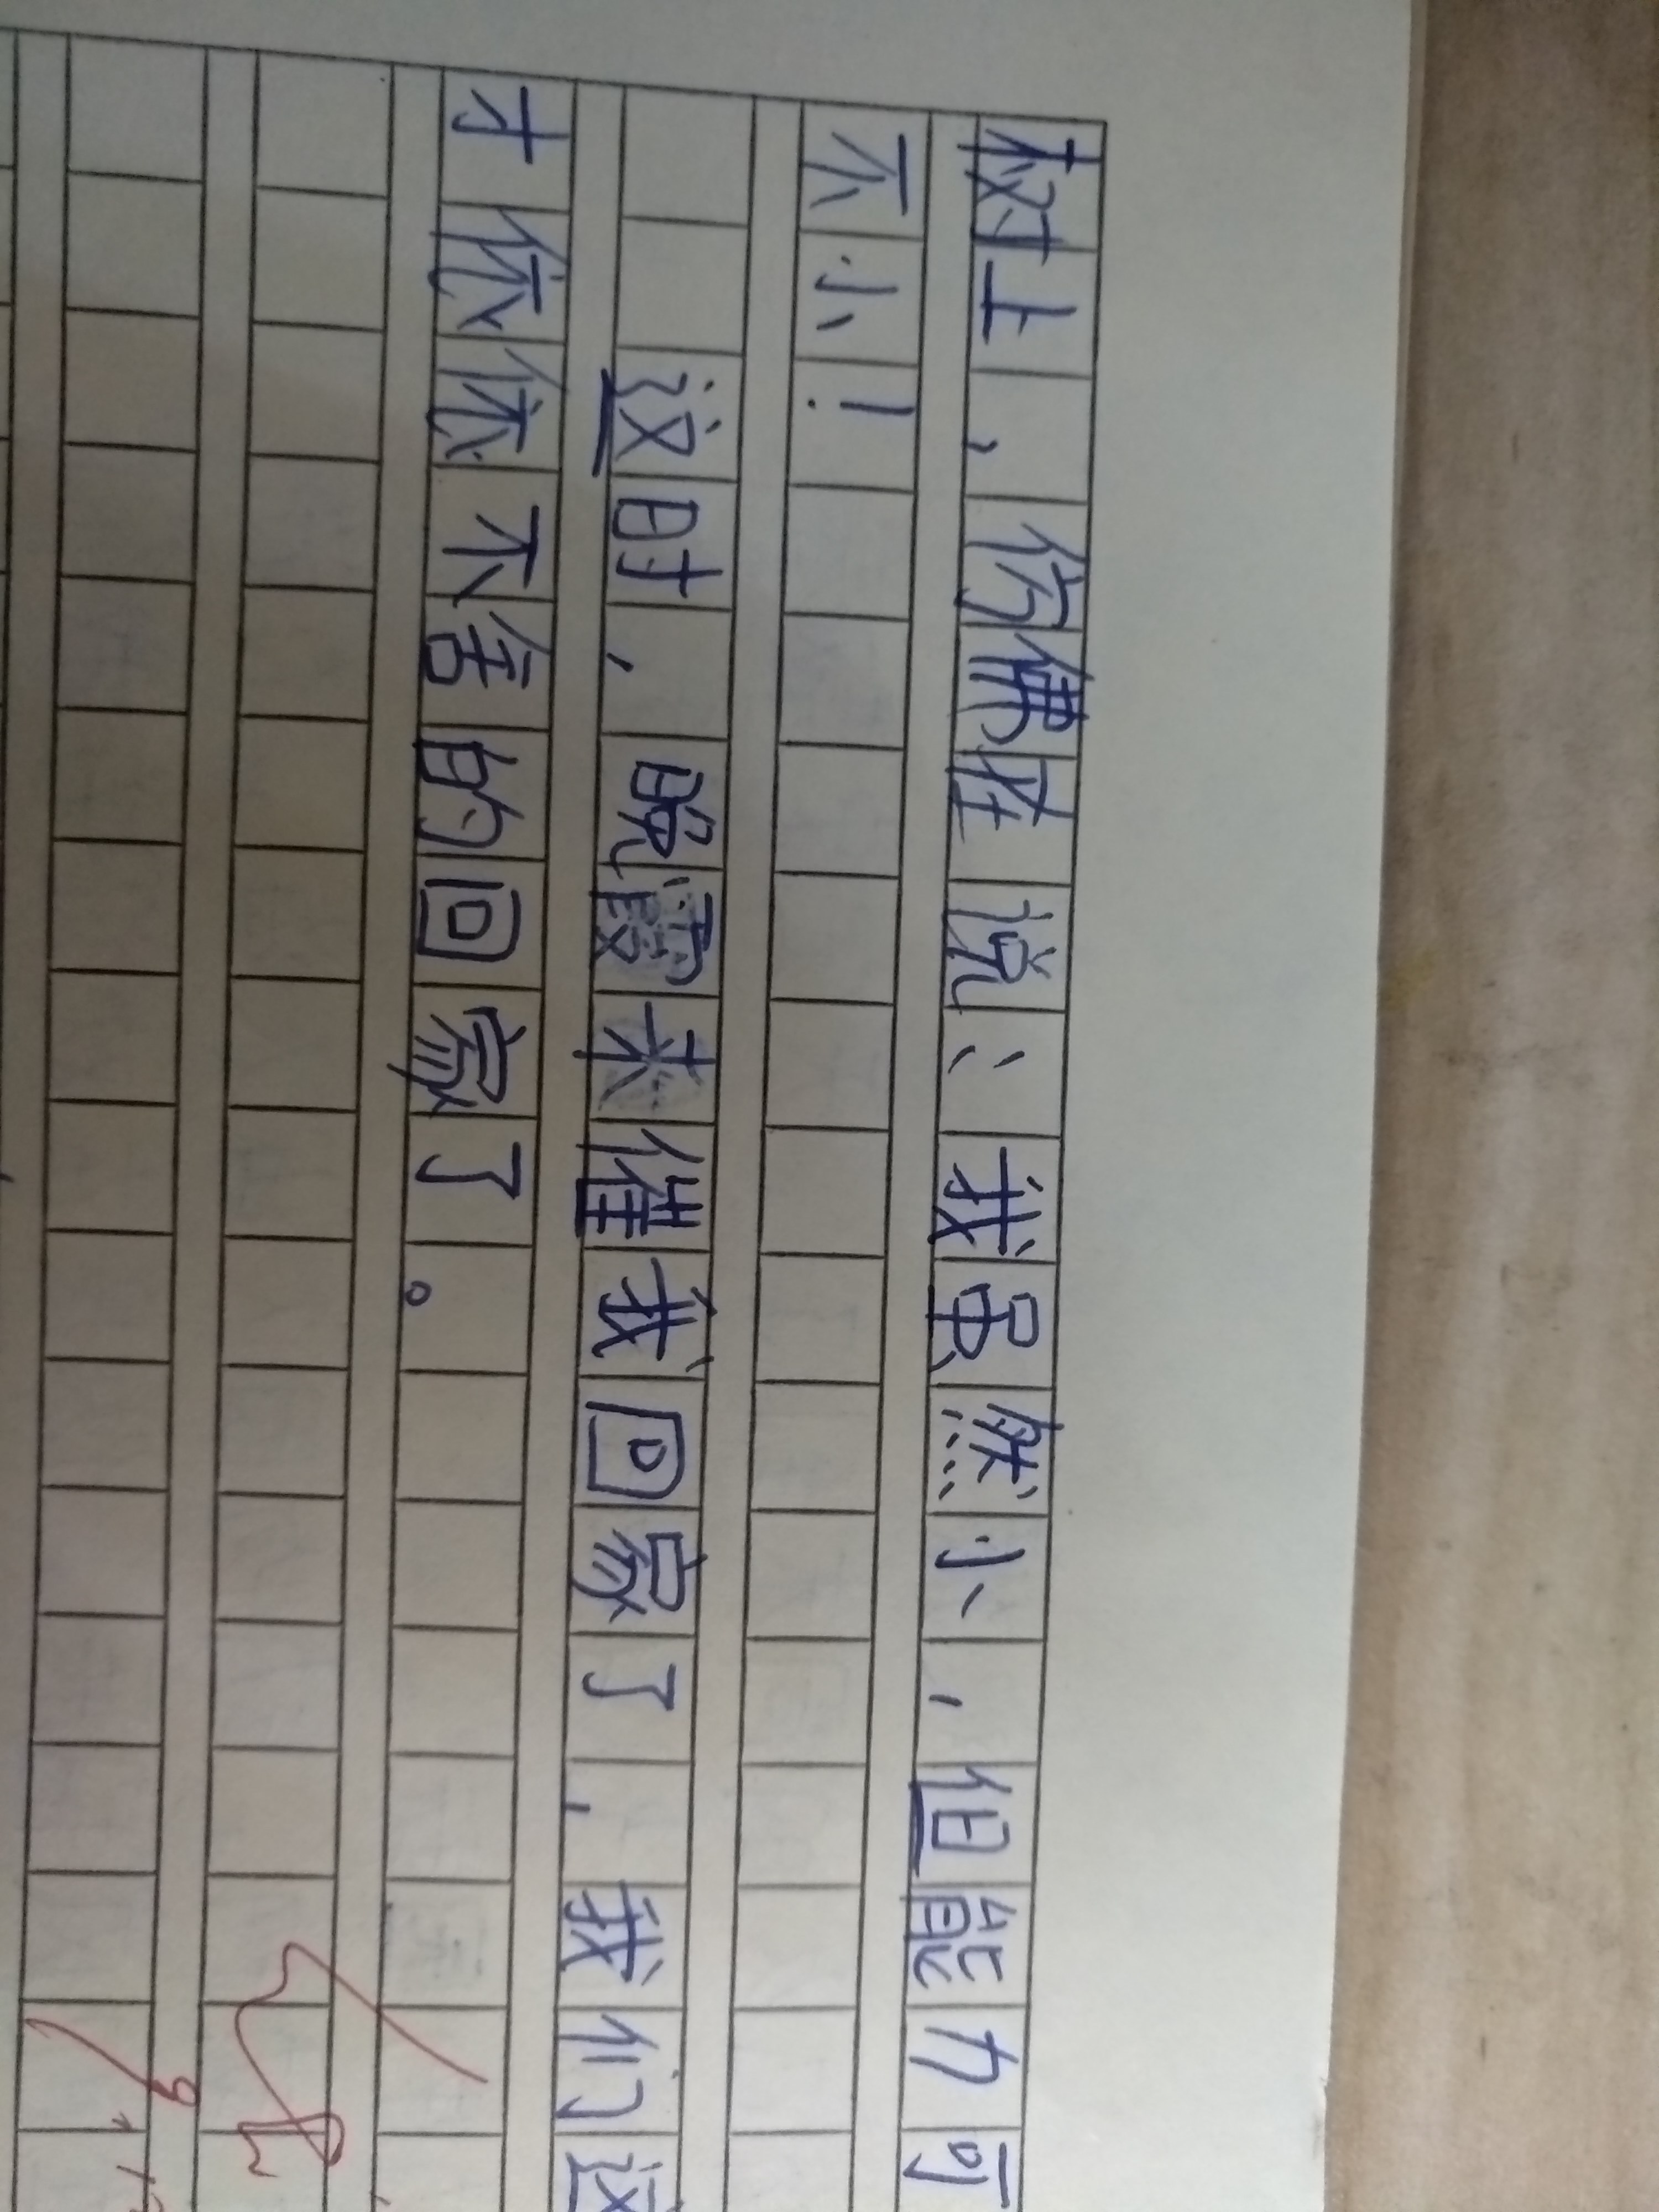 树上，仿佛在说：我虽然小，但能力可
不小！
这时，晚霞来催我回家了，我们这
才依依不舍的回家了。